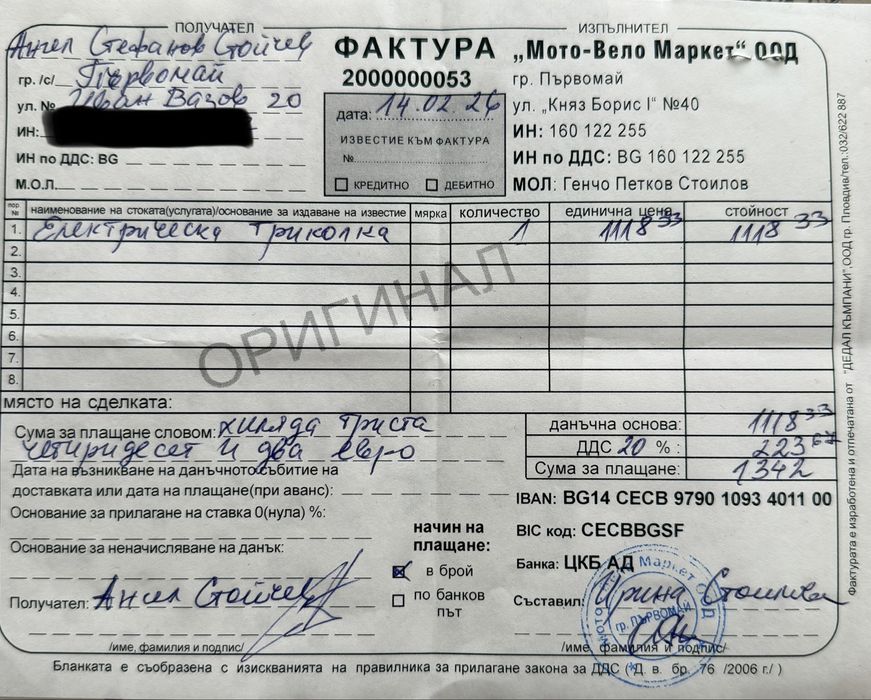 ПОЛУЧАТЕЛ
Ангел Стефанов Стойчев
гр. /с/ Първомай
ул. № Иван Вазов 20
ИН:
ИН по ДДС: BG
М.О.Л.
ФАКТУРА
2000000053
дата: 14.02.26
ИЗВЕСТИЕ КЪМ ФАКТУРА
№
КРЕДИТНО ДЕБИТНО
ИЗПЪЛНИТЕЛ
„Мото-Вело Маркет“ ООД
гр. Първомай
ул. „Княз Борис I“ №40
ИН: 160 122 255
ИН по ДДС: BG 160 122 255
МОЛ: Генчо Петков Стоилов
пор. № наименование на стоката(услугата)/основание за издаване на известие мярка количество единична цена стойност
1. Електрическа триколка 1 1118 33 1118 33
2.
3.
4.
5.
6.
7.
8.
ОРИГИНАЛ
място на сделката:
Сума за плащане словом: хиляда триста
четиридесет и два евро
Дата на възникване на данъчното събитие на
доставката или дата на плащане(при аванс):
Основание за прилагане на ставка 0(нула) %:
Основание за неначисляване на данък:
данъчна основа: 1118 33
ДДС 20 % : 223 67
Сума за плащане: 1342
IBAN: BG14 CECB 9790 1093 4011 00
BIC код: CECBBGSF
Банка: ЦКБ АД
начин на
плащане:
в брой
по банков
път
Получател: Ангел Стойчев
/име, фамилия и подпис/
Съставил: Ирина Стоилова
/име, фамилия и подпис/
Мото Маркет ООД
гр. ПЪРВОМАЙ
Бланката е съобразена с изискванията на правилника за прилагане закона за ДДС (Д. в. бр. 76 /2006 г./ )
Фактурата е изработена и отпечатана от "ДЕДАЛ КЪМПАНИ",ООД гр. Пловдив/тел.:032/622 887